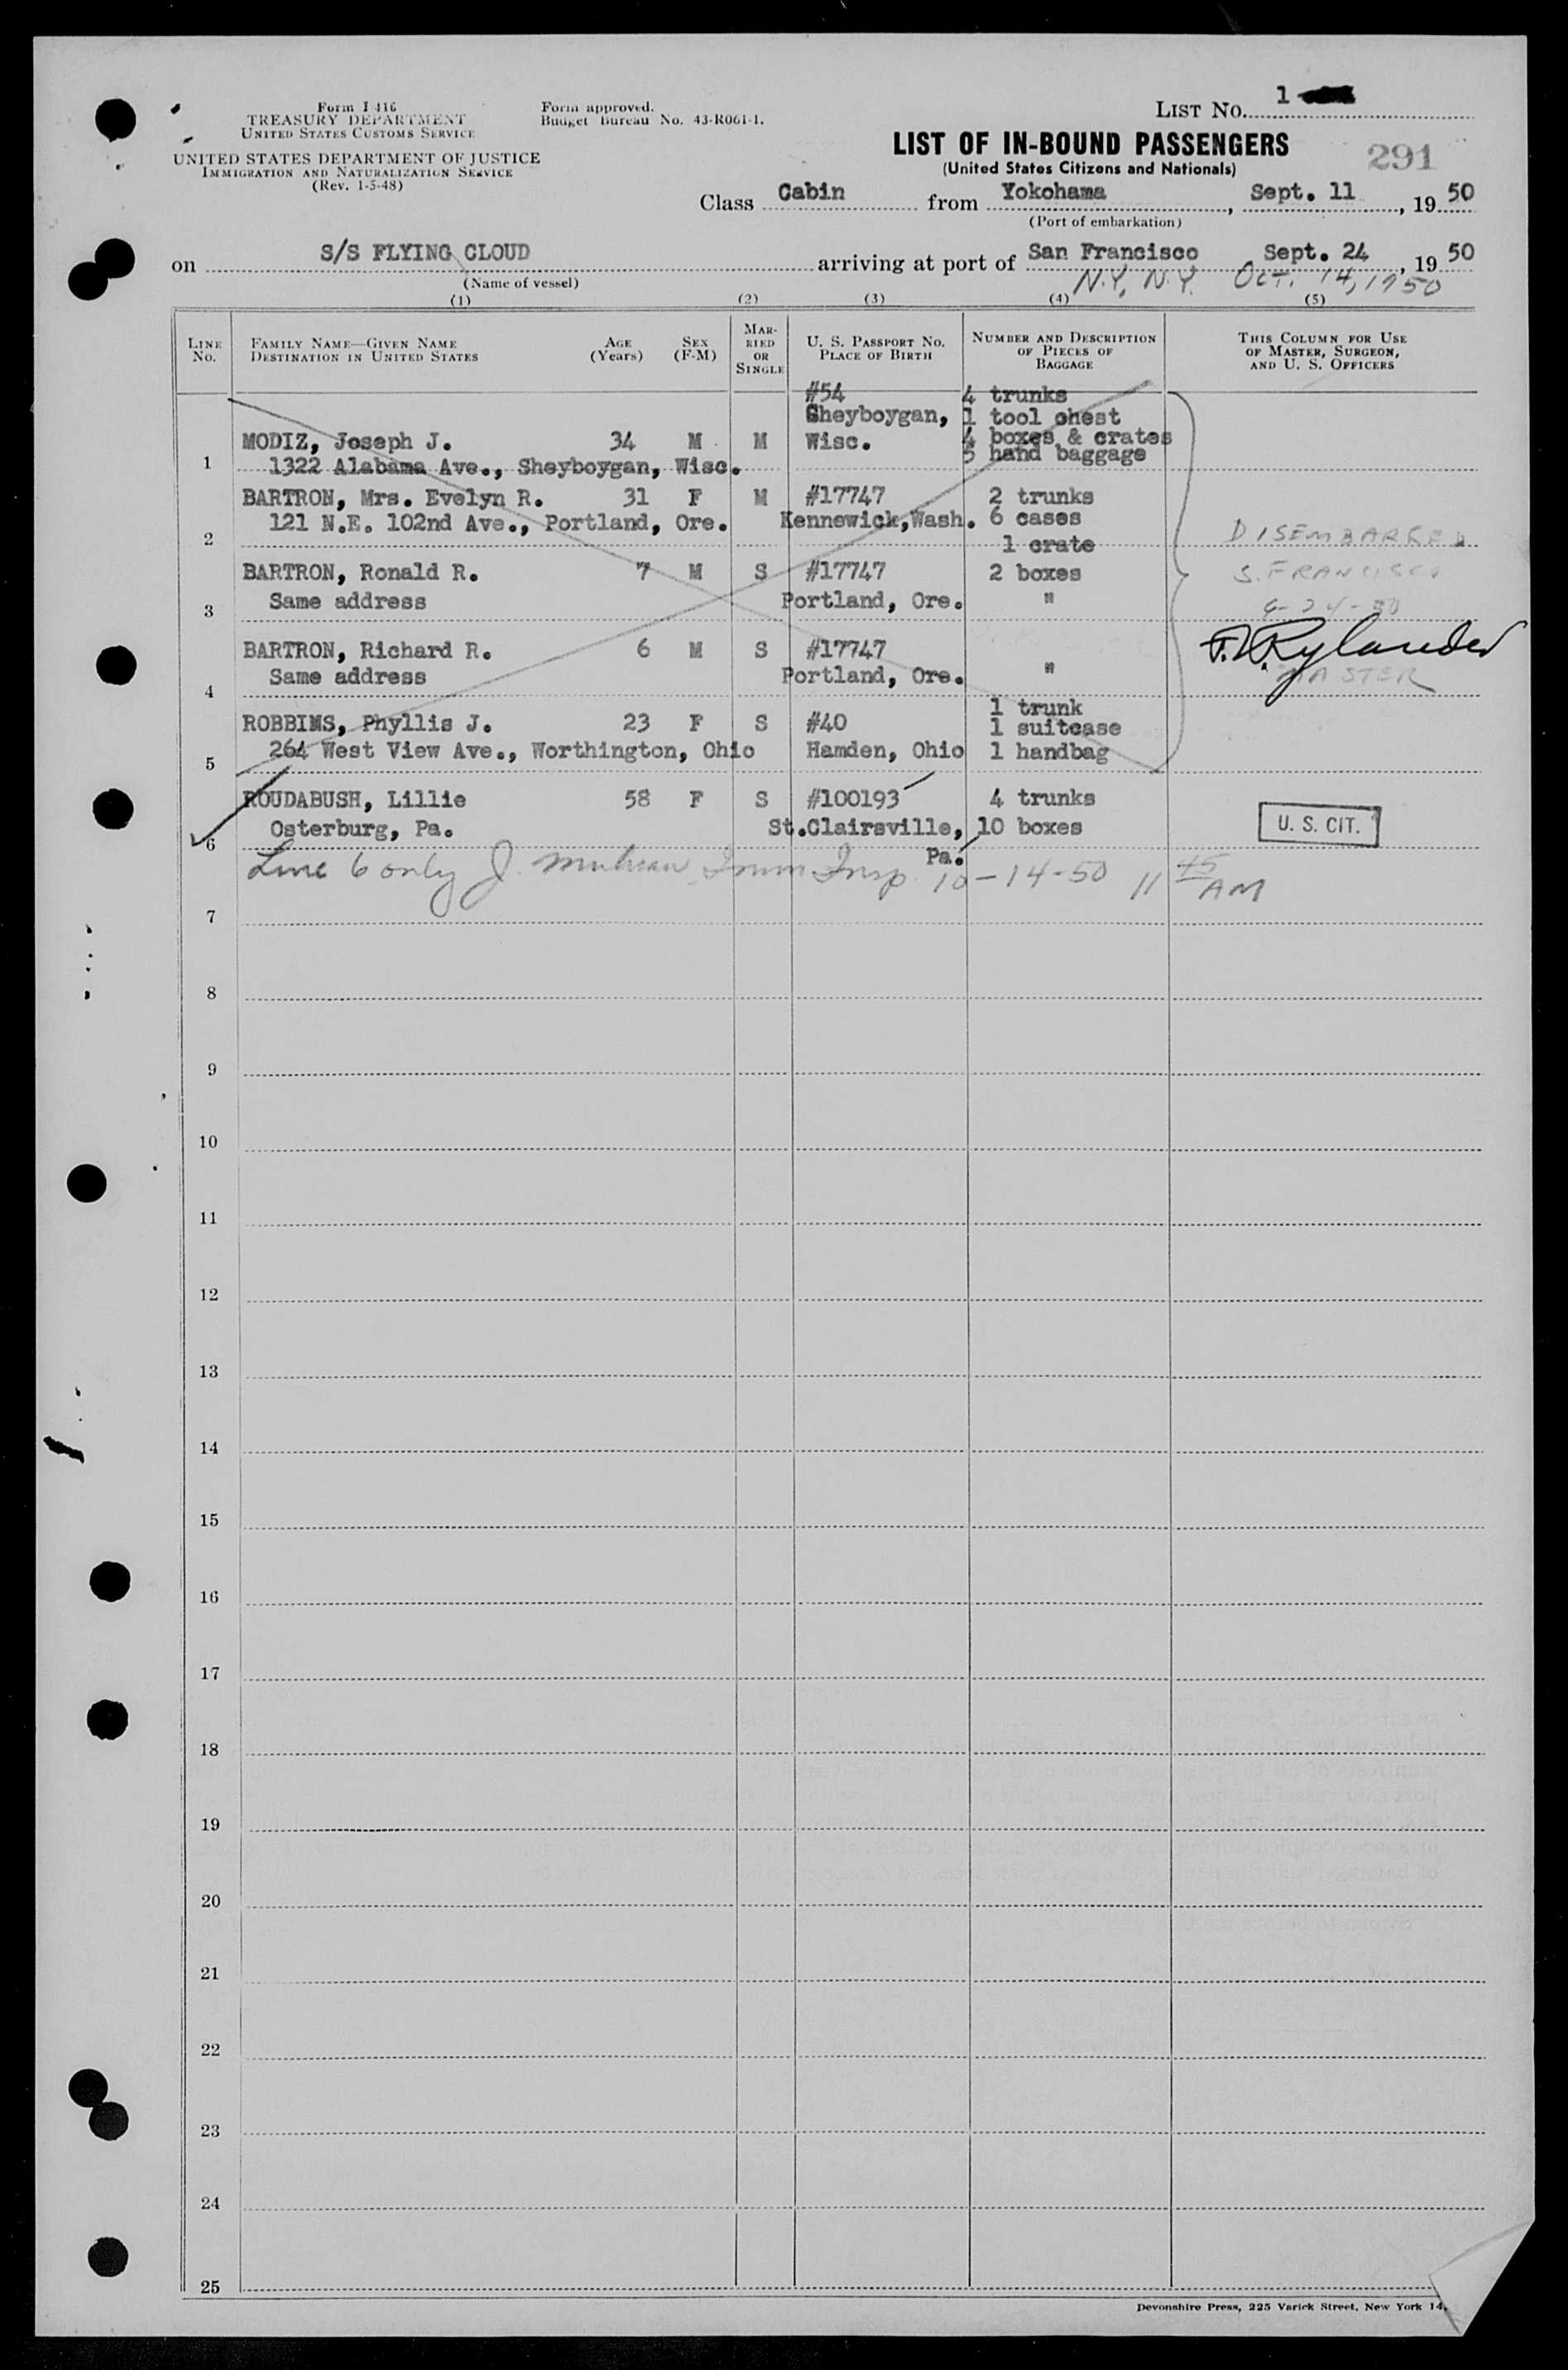 Form I 416
TREASURY DEPARTMENT
UNITED STATES CUSTOMS SERVICE
UNITED STATES DEPARTMENT OF JUSTICE
IMMIGRATION AND NATURALIZATION SERVICE
(Rev. 1-5-48)
Form approved.
Budget Bureau No. 43-R061-1.
LIST NO. 1
LIST OF IN-BOUND PASSENGERS
(United States Citizens and Nationals)
291
Class Cabin from Yokohama, Sept. 11, 1950
(Port of embarkation)
on S/S FLYING CLOUD arriving at port of San Francisco Sept. 24, 1950
(Name of vessel)
N.Y, N.Y. OCT. 14, 1950
(1) (2) (3) (4) (5)
LINE No. FAMILY NAME—GIVEN NAME DESTINATION IN UNITED STATES AGE (Years) SEX (F-M) MARRIED OR SINGLE U. S. PASSPORT NO. PLACE OF BIRTH NUMBER AND DESCRIPTION OF PIECES OF BAGGAGE THIS COLUMN FOR USE OF MASTER, SURGEON, AND U. S. OFFICERS
#54 4 trunks
Sheyboygan, 1 tool chest
MODIZ, Joseph J. 34 M M Wisc. 4 boxes & crates
1 1322 Alabama Ave., Sheyboygan, Wisc. 5 hand baggage
BARTRON, Mrs. Evelyn R. 31 F M #17747 2 trunks
121 N.E. 102nd Ave., Portland, Ore. Kennewick, Wash. 6 cases
2 1 crate DISEMBARKED
BARTRON, Ronald R. 7 M S #17747 2 boxes S. FRANCISCO
3 Same address Portland, Ore. "
BARTRON, Richard R. 6 M S #17747 Rylander
4 Same address Portland, Ore. " MASTER
1 trunk
ROBBINS, Phyllis J. 23 F S #40 1 suitcase
5 264 West View Ave., Worthington, Ohio Hamden, Ohio 1 handbag
ROUDABUSH, Lillie 58 F S #100193 4 trunks
6 Osterburg, Pa. St.Clairsville, 10 boxes U. S. CIT.
Pa.
Line 6 only J. Imm Insp. 10-14-50 11 45 AM
7
8
9
10
11
12
13
14
15
16
17
18
19
20
21
22
23
24
25
Devonshire Press, 225 Varick Street, New York 14,